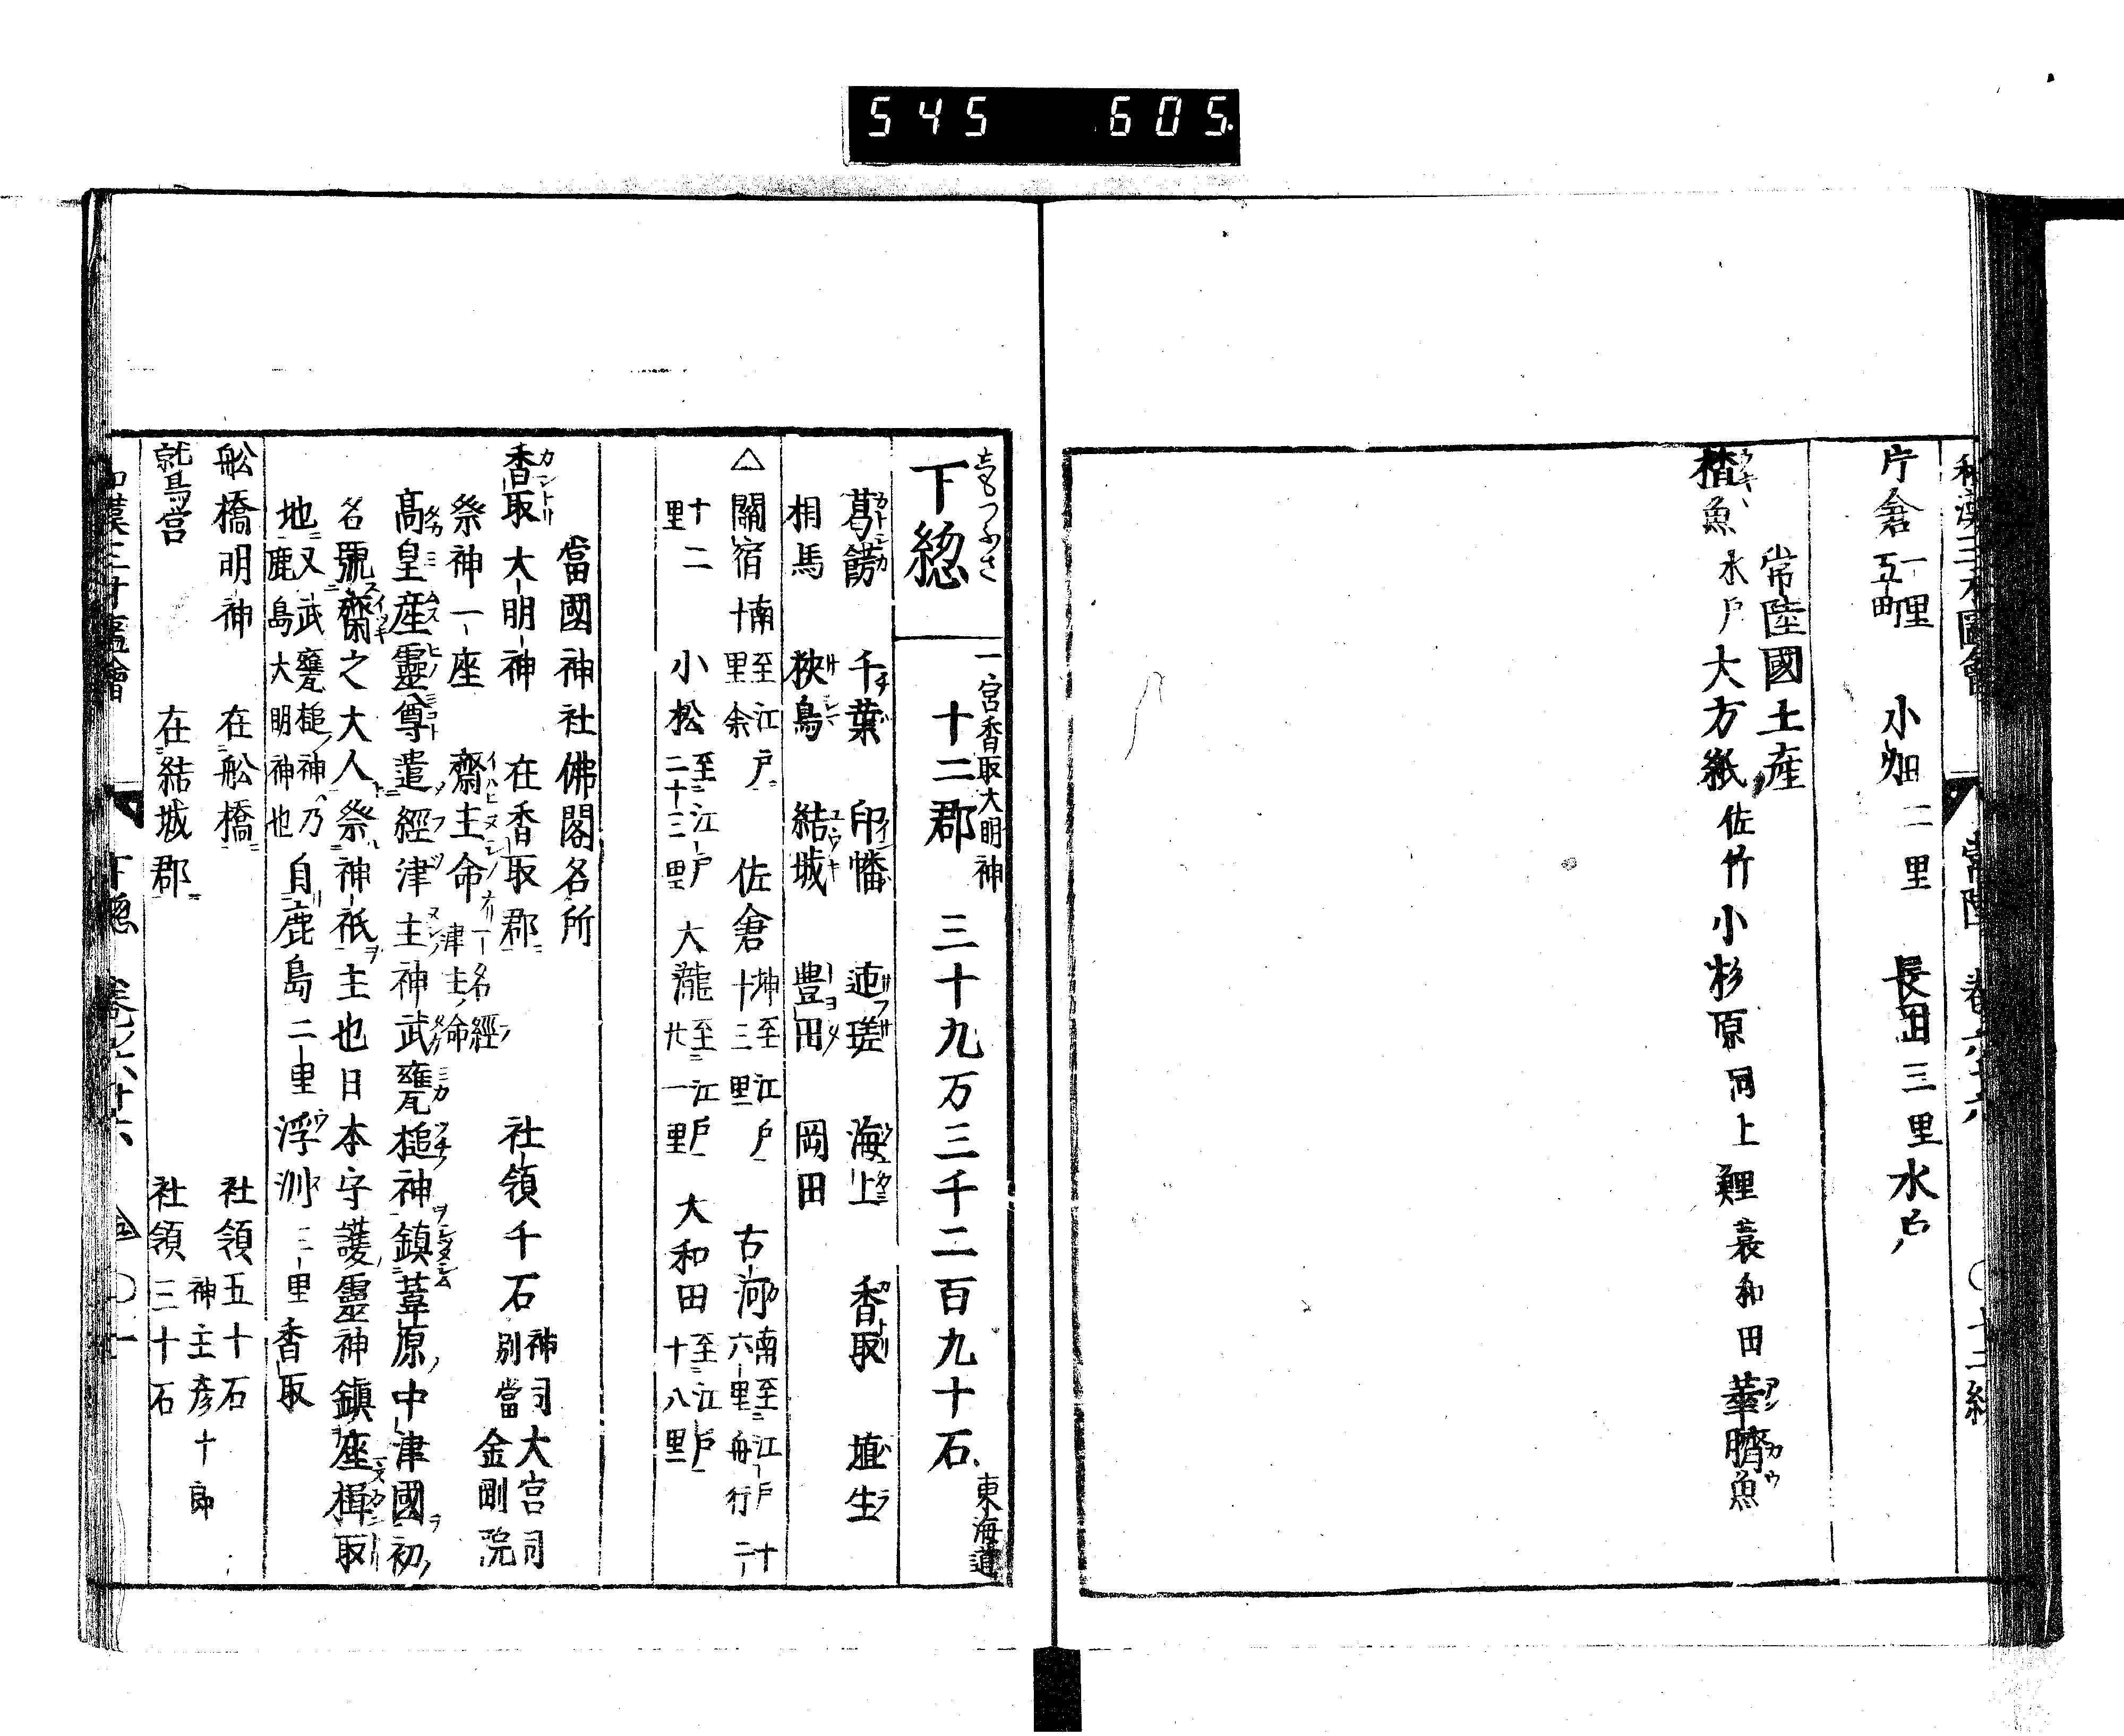 545 605.
片倉 一里五町 小畑 二里 長岡 三里 水戸
常陸國土產
楷魚 水戸 大方紙 佐竹 小杉原 同上 鯉 蓑和田 華臍魚
下総 しもつふさ
一宮香取大明神
十二郡 三十九万三千二百九十石
東海道
葛餝 千葉 印幡 迊瑳 海上 香取 埴生
相馬 猨島 結城 豊田 岡田
△關宿 南至江戸十里余 佐倉 坤至江戸十三里 古河 南至江戸六里舟行二十
十二里 小松 至江戸二十三里 大瀧 至江戸廿一里 大和田 至江戸十八里
當國神社佛閣名所
香取大明神 在香取郡 社領千石 神司大宮司 別當金剛院
祭神一座 齋主命 一名經津主命
髙皇産靈尊遣經津主神武甕槌神鎮葦原中津國初
名號齋之大人祭神祇主也日本守護靈神鎮座楫取
地 又武甕槌神乃鹿島大明神也 自鹿島二里浮洲二里香取
舩橋明神 在舩橋 社領五十石 神主彦十郎
鷲宮 在結城郡 社領三十石